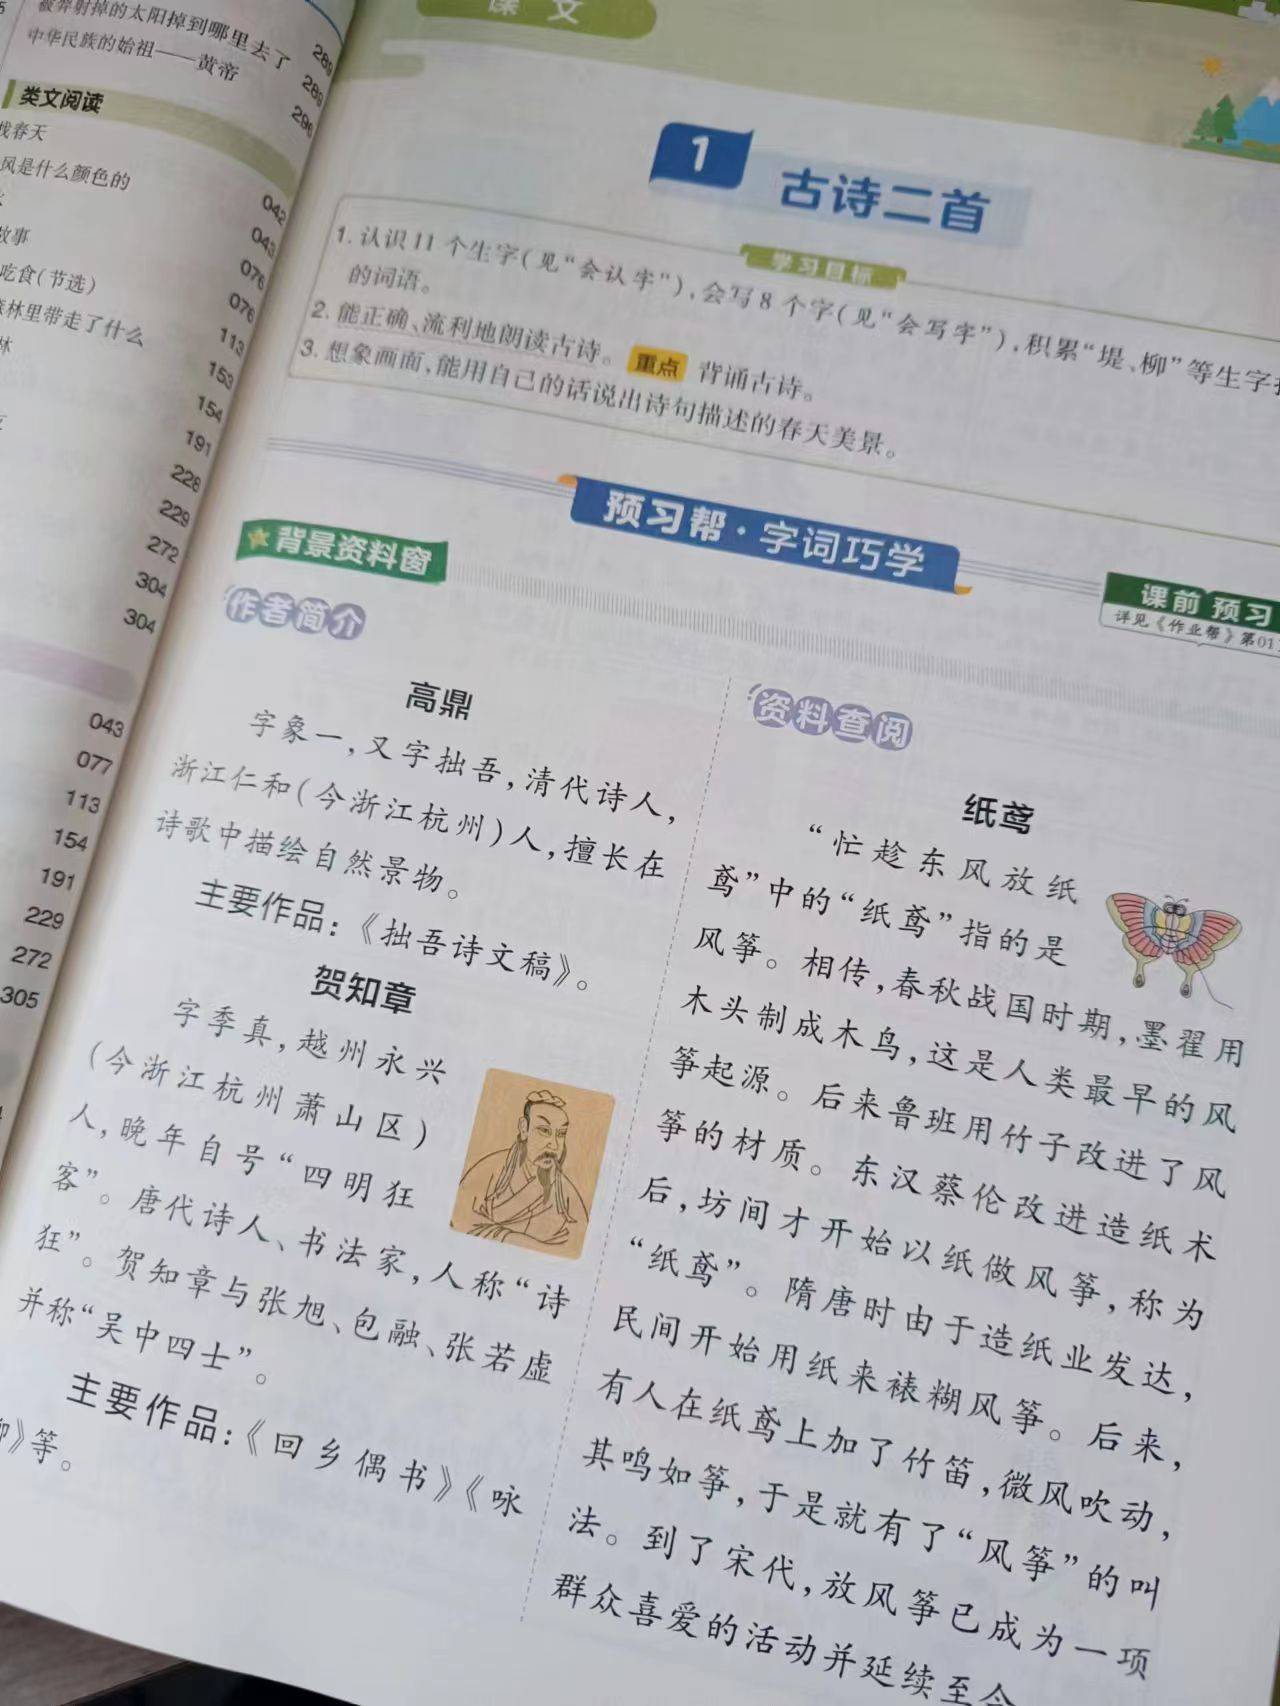 被羿射掉的太阳掉到哪里去了 289
中华民族的始祖——黄帝 289
296
类文阅读
找春天 042
风是什么颜色的 043
076
故事 076
吃食(节选) 113
森林里带走了什么 153
林 154
191
228
229
272
304
304
043
077
113
154
191
229
272
305
课文
1 古诗二首
学习目标
1. 认识11个生字(见“会认字”),会写8个字(见“会写字”),积累“堤、柳”等生字
的词语。
2. 能正确、流利地朗读古诗。 重点 背诵古诗。
3. 想象画面,能用自己的话说出诗句描述的春天美景。
预习帮·字词巧学
课前 预习
详见《作业帮》第01
背景资料窗
作者简介
高鼎
字象一,又字拙吾,清代诗人,
浙江仁和(今浙江杭州)人,擅长在
诗歌中描绘自然景物。
主要作品:《拙吾诗文稿》。
贺知章
字季真,越州永兴
(今浙江杭州萧山区)
人,晚年自号“四明狂
客”。唐代诗人、书法家,人称“诗
狂”。贺知章与张旭、包融、张若虚
并称“吴中四士”。
主要作品:《回乡偶书》《咏
柳》等。
资料查阅
纸鸢
“忙趁东风放纸
鸢”中的“纸鸢”指的是
风筝。相传,春秋战国时期,墨翟用
木头制成木鸟,这是人类最早的风
筝起源。后来鲁班用竹子改进了风
筝的材质。东汉蔡伦改进造纸术
后,坊间才开始以纸做风筝,称为
“纸鸢”。隋唐时由于造纸业发达,
民间开始用纸来裱糊风筝。后来,
有人在纸鸢上加了竹笛,微风吹动,
其鸣如筝,于是就有了“风筝”的叫
法。到了宋代,放风筝已成为一项
群众喜爱的活动并延续至今